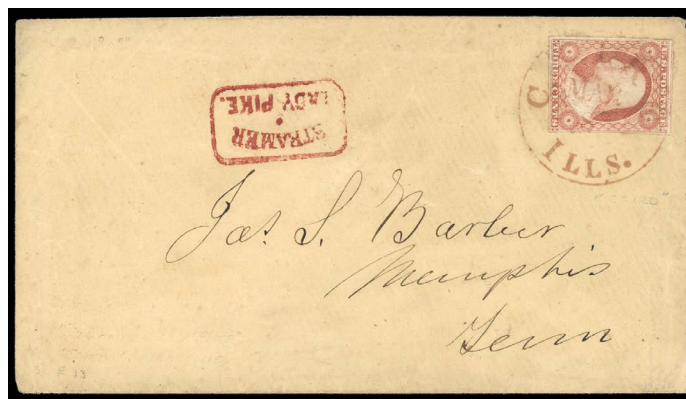 STEAMER
LADY PIKE.
ILLS.
Jas. S. Barber
Memphis
Tenn